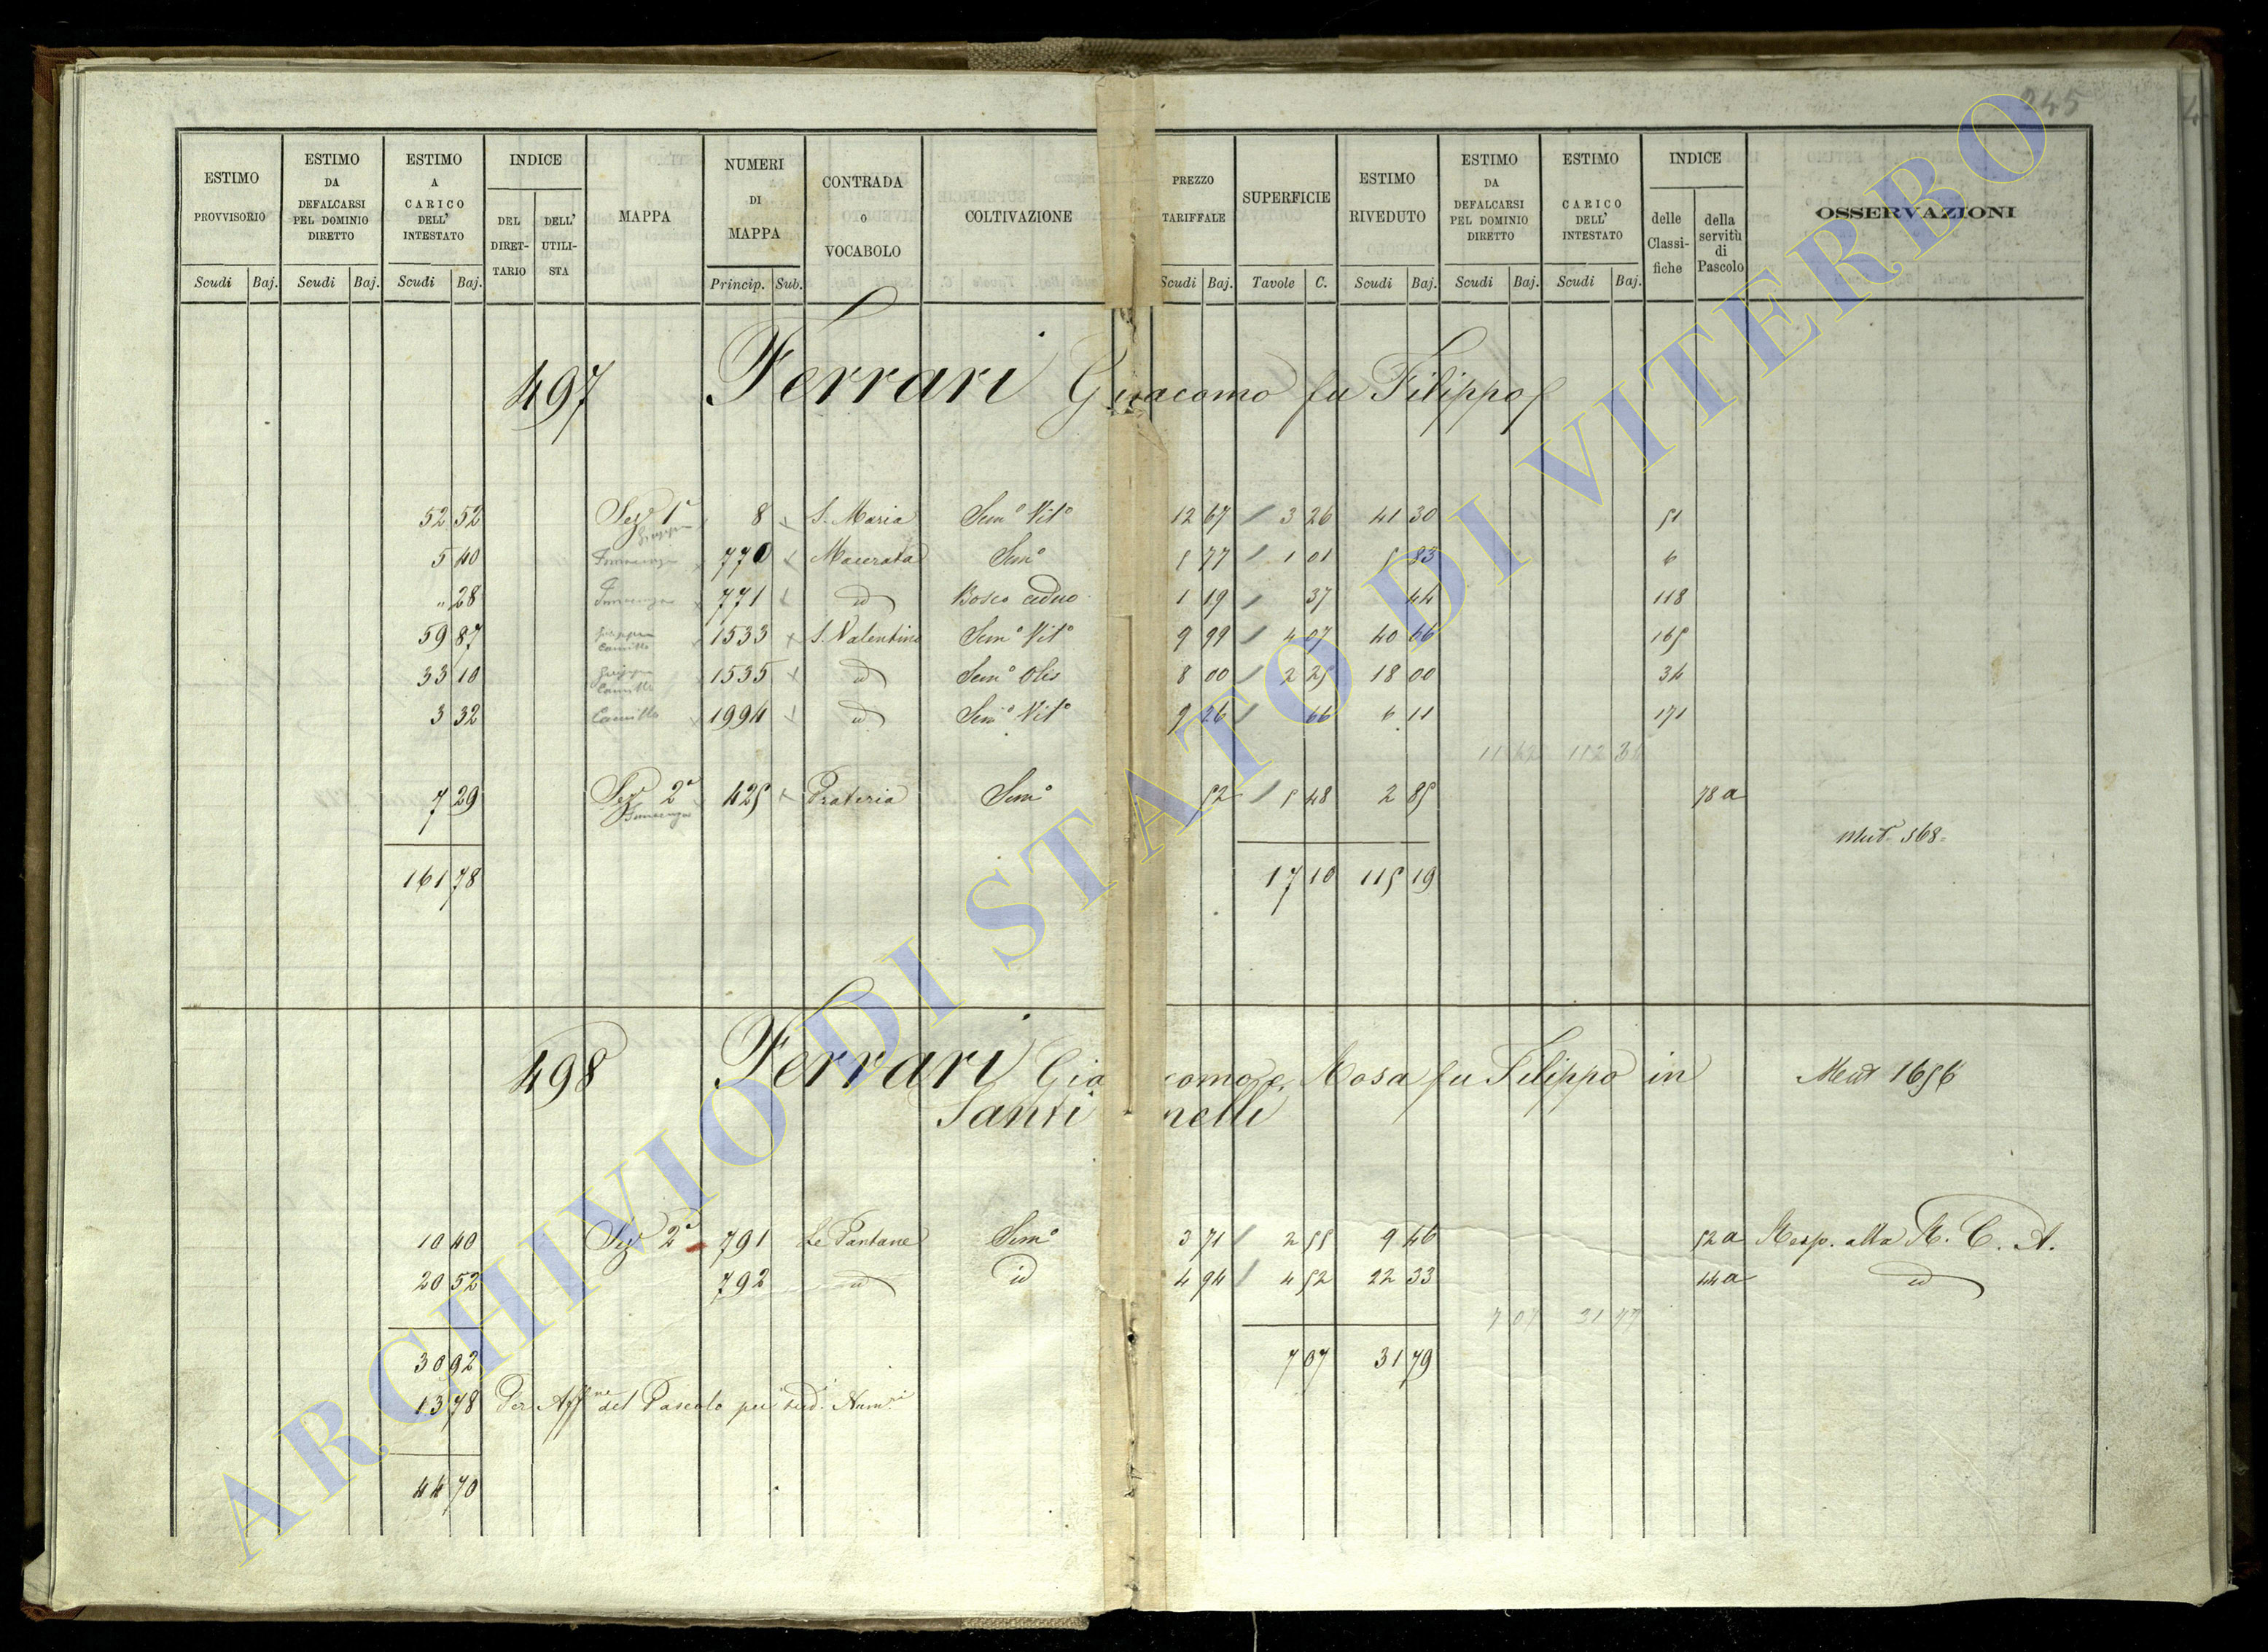 245
ESTIMO PROVVISORIO | ESTIMO DA DEFALCARSI PEL DOMINIO DIRETTO | ESTIMO A CARICO DELL' INTESTATO | INDICE DEL DIRETTARIO | DELL' UTILISTA | MAPPA | NUMERI DI MAPPA | CONTRADA O VOCABOLO | COLTIVAZIONE | PREZZO TARIFFALE | SUPERFICIE | ESTIMO RIVEDUTO | ESTIMO DA DEFALCARSI PEL DOMINIO DIRETTO | ESTIMO A CARICO DELL' INTESTATO | INDICE delle Classifiche | della servitù di Pascolo | OSSERVAZIONI
Scudi Baj. Scudi Baj. Scudi Baj. Princip. Sub. Scudi Baj. Tavole C. Scudi Baj. Scudi Baj. Scudi Baj.
497 Ferrari Giacomo fu Filippo
52 52 Sez 1ª 8 S. Maria Semº Vitº 12 67 3 26 41 30 51
5 40 770 Macerata Semº 5 77 1 01 5 83 6
" 28 771 id Bosco ceduo 1 19 37 44 118
59 87 Camillo 1533 S. Valentino Semº Vitº 9 99 4 07 40 66 165
33 10 Camillo 1535 id Semº Olis 8 00 2 25 18 00 34
3 32 Camillo 1994 id Semº Vitº 9 26 66 6 11 171
112 34
7 29 Sez 2ª 425 Prateria Semº 52 5 48 2 85 78 a
Mut. 568
161 78 17 10 115 19
498 Ferrari Giacomo e Rosa fu Filippo in Mut 1656
Santinelli
10 40 Sez 2ª 791 Le Pantane Semº 3 71 2 55 9 46 52 a Resp. alla R. C. A.
20 52 792 id id 4 94 4 52 22 33 44 a id
7 07 31 77
30 92 7 07 31 79
13 78 Per Aff.ne del Pascolo pei sud.i Num.ri
44 70
ARCHIVIO DI STATO DI VITERBO